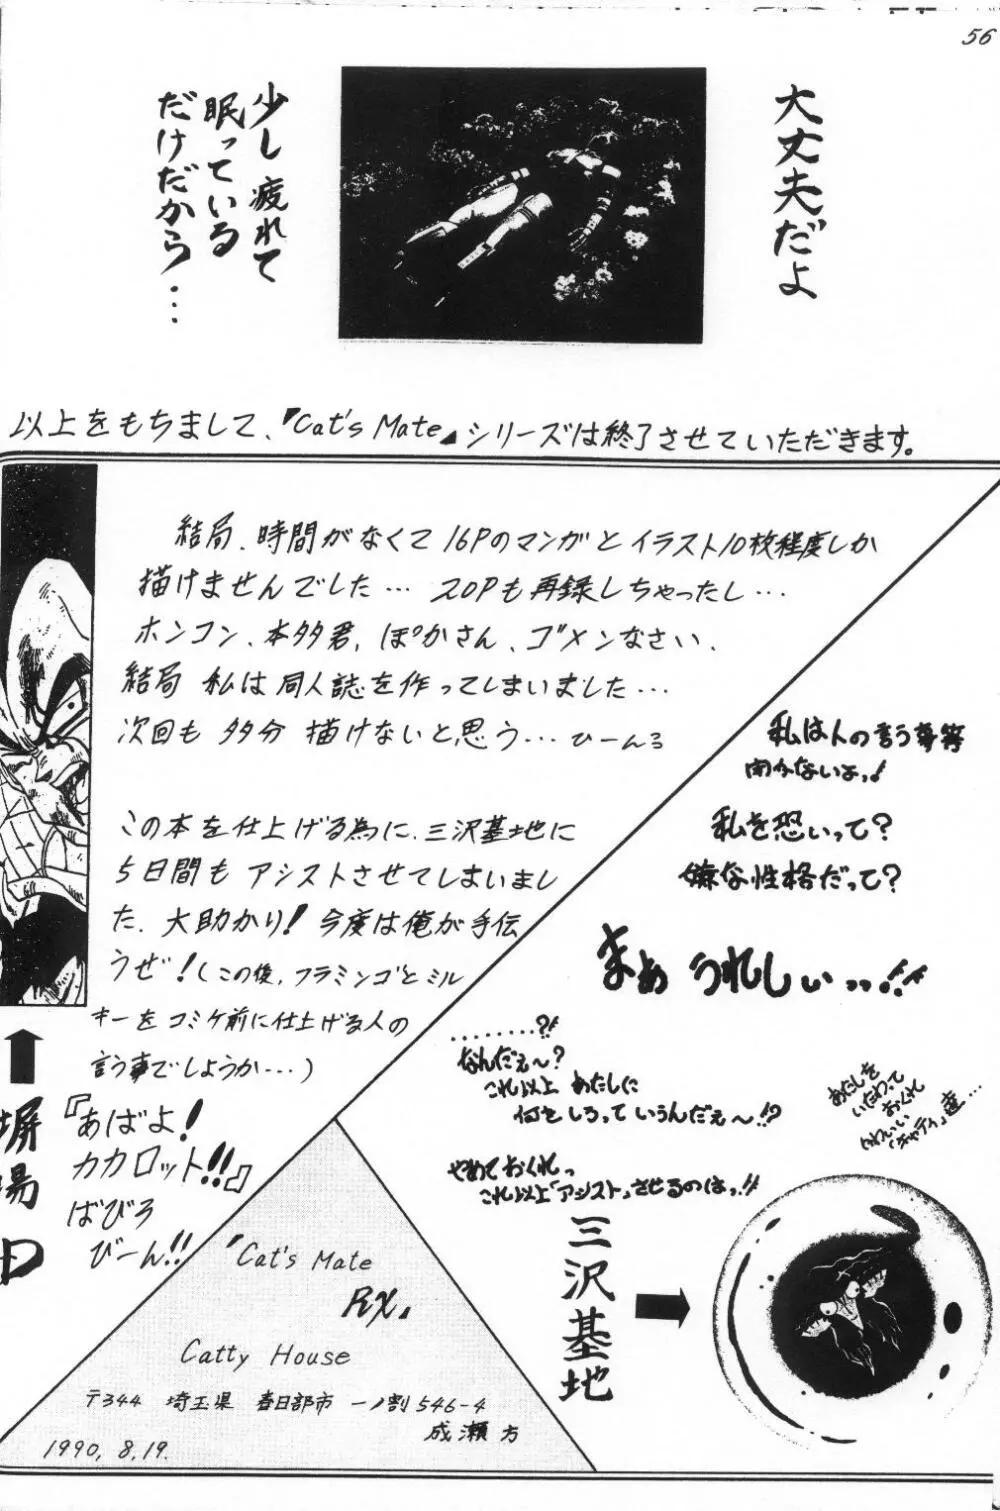 56
大丈夫だよ
少し疲れて
眠っている
だけだから、…
以上をもちまして、『Cat's Mate』シリーズは終了させていただきます。
結局、時間がなくて16Pのマンガとイラスト10枚程度しか
描けませんでした… 20Pも再録しちゃったし…
ホンコン、本多君、ぽかさん、ゴメンなさい、
結局 私は同人誌を作ってしまいました…
次回も 多分 描けないと思う… ひーんろ
この本を仕上げる為に、三沢基地に
5日間も アシストさせてしまいまし
た、大助かり!今度は俺が手伝
うぜ!(この後、フラミンゴとミル
キーをコミケ前に仕上げる人の
言う事でしようか…)
『あばよ!
カカロット!!』
ばびろ
びーん!!
私は人の言う事等
聞かないよっ!
私を恐いって?
嫌な性格だって?
まぁ うれしぃっ…!!
………?!
なんだぇ〜?
これ以上 あたしに
何をしろって いうんだぇ〜!?
やめておくれっ
これ以上「アシスト」させるのはっ!!
あたしを
いたわって
おくれ
かわいい
「キャティ」達…
三沢基地
『Cat's Mate
RX』
Catty House
〒344 埼玉県 春日部市 一ノ割546-4
成瀬方
1990, 8,19.